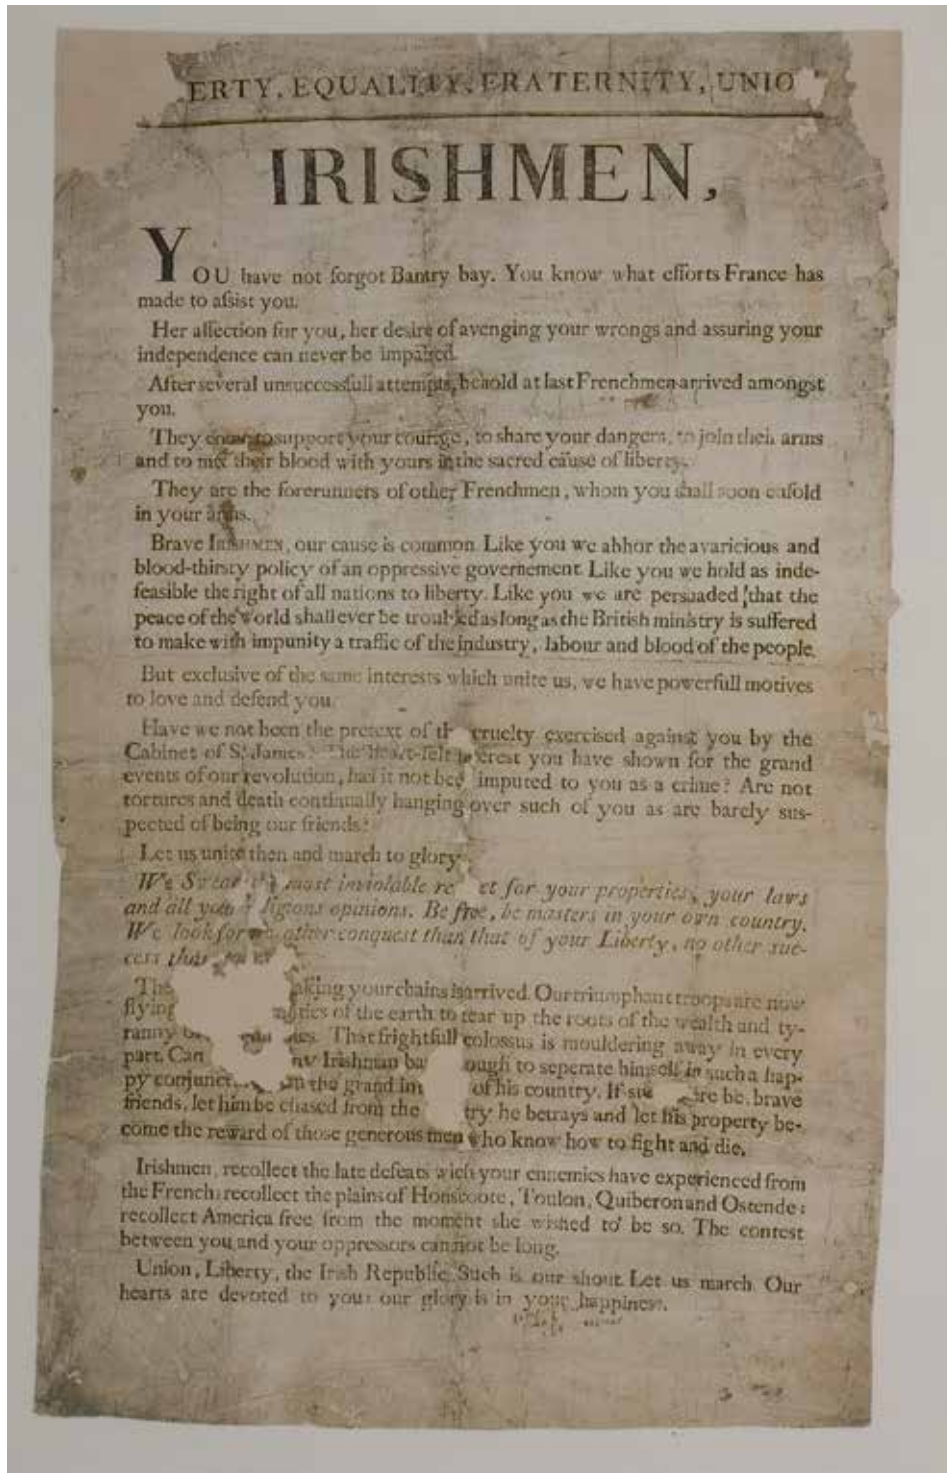 ERTY, EQUALITY, FRATERNITY, UNIO
IRISHMEN,
YOU have not forgot Bantry bay. You know what efforts France has
made to assist you.
Her affection for you, her desire of avenging your wrongs and assuring your
independence can never be impaired.
After several unsuccessfull attempts, behold at last Frenchmen arrived amongst
you.
They come to support your courage, to share your dangers, to join their arms
and to mix their blood with yours in the sacred cause of liberty.
They are the forerunners of other Frenchmen, whom you shall soon enfold
in your arms.
Brave IRISHMEN, our cause is common. Like you we abhor the avaricious and
blood-thirsty policy of an oppressive governement. Like you we hold as inde-
feasible the right of all nations to liberty. Like you we are persuaded that the
peace of the world shall ever be troubled as long as the British ministry is suffered
to make with impunity a traffic of the industry, labour and blood of the people.
But exclusive of the same interests which unite us, we have powerfull motives
to love and defend you.
Have we not been the pretext of the cruelty exercised against you by the
Cabinet of St. James? The heart-felt interest you have shown for the grand
events of our revolution, has it not been imputed to you as a crime? Are not
tortures and death continually hanging over such of you as are barely sus-
pected of being our friends?
Let us unite then and march to glory.
We Swear the most inviolable re ct for your properties, your laws
and all your ligious opinions. Be free, be masters in your own country.
We look for no other conquest than that of your Liberty, no other suc-
cess than
The aking your chains is arrived. Our triumphant troops are now
flying ties of the earth to tear up the roots of the wealth and ty-
ranny That frightfull colossus is mouldering away in every
part. Can Irishman ba ough to seperate himself in such a hap-
py conjunc the grand in of his country. If be, brave
friends, let him be chased from the try he betrays and let his property be-
come the reward of those generous men who know how to fight and die.
Irishmen, recollect the late defeats wich your ennemies have experienced from
the French; recollect the plains of Honscoote, Toulon, Quiberon and Ostende;
recollect America free from the moment she wished to be so. The contest
between you and your oppressors cannot be long.
Union, Liberty, the Irish Republic. Such is our shout. Let us march. Our
hearts are devoted to you: our glory is in your happiness.